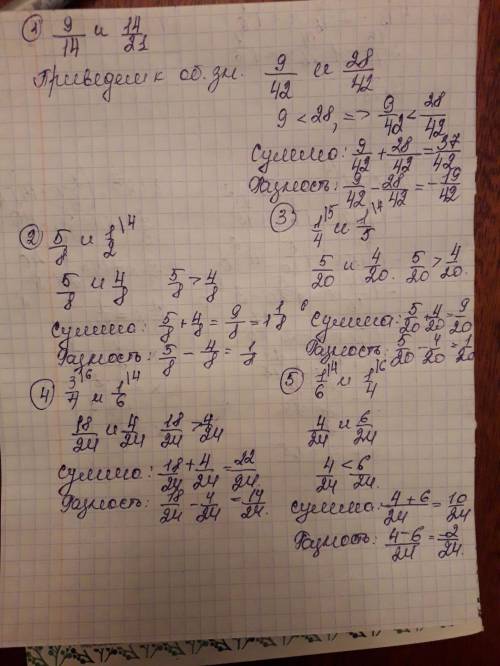 ① 9/14 и 14/21
Приведем к об. зн. 9/42 и 28/42
9 < 28, => 9/42 < 28/42
Сумма: 9/42 + 28/42 = 37/42
Разность: 9/42 - 28/42 = -19/42
② 5/8 и 1/2 \4
5/8 и 4/8 5/8 > 4/8
Сумма: 5/8 + 4/8 = 9/8 = 1 1/8
Разность: 5/8 - 4/8 = 1/8
③ 1/4 \5 и 1/5 \4
5/20 и 4/20. 5/20 > 4/20.
Сумма: 5/20 + 4/20 = 9/20
Разность: 5/20 - 4/20 = 1/20
④ 3/4 \6 и 1/6 \4
18/24 и 4/24 18/24 > 4/24
Сумма: 18/24 + 4/24 = 22/24.
Разность: 18/24 - 4/24 = 14/24.
⑤ 1/6 \4 и 1/4 \6
4/24 и 6/24
4/24 < 6/24
Сумма: 4+6/24 = 10/24
Разность: 4-6/24 = -2/24.